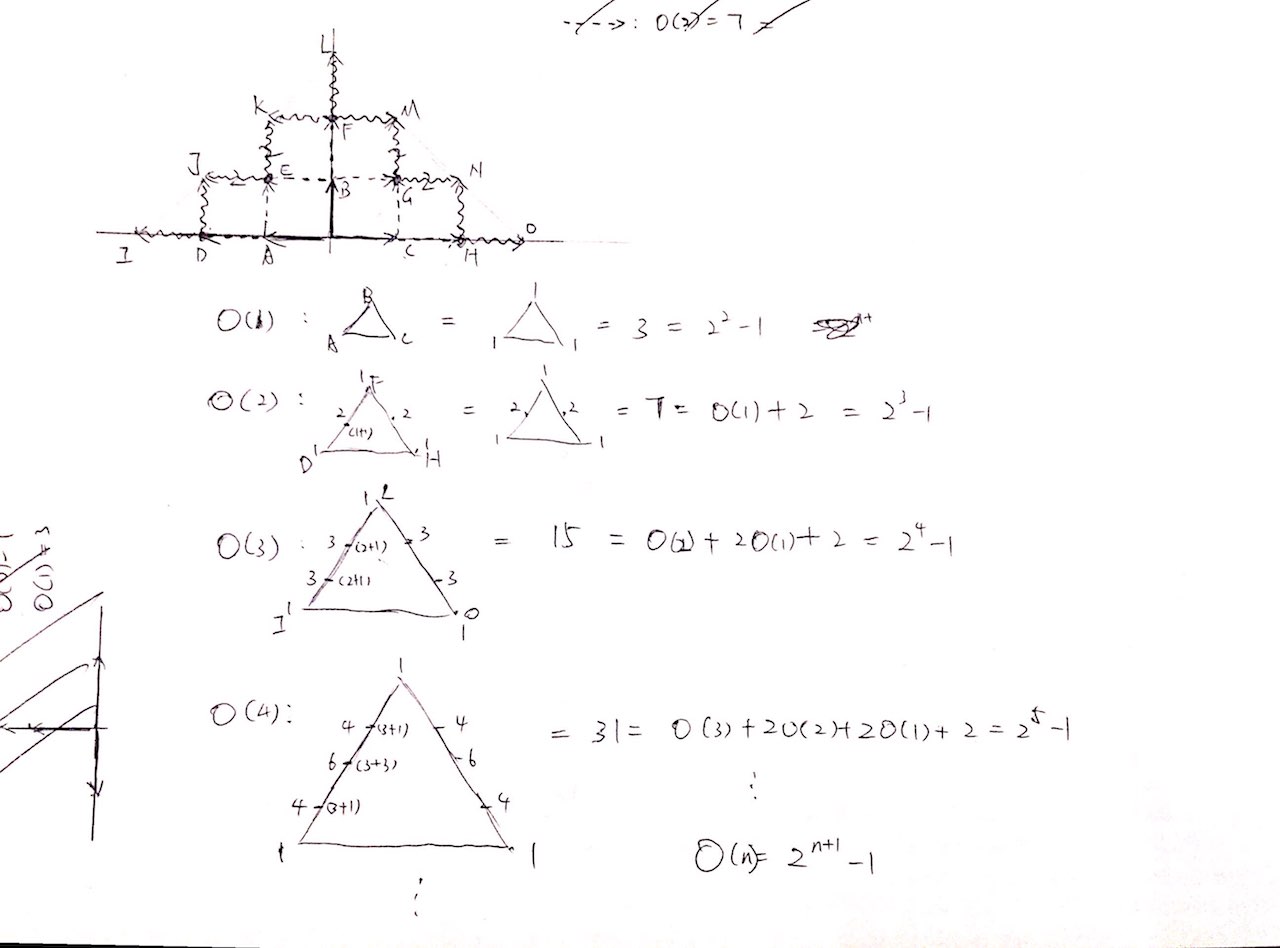 ----> : O(2) = 7 =
L
K F M
J 2 E B G 2 N
I D A C H O
O(1) : B A C = 1 1 1 = 3 = 2² - 1
O(2) : 1 F 2 2 (1+1) D 1 1 H = 1 2 2 1 1 = 7 = O(1) + 2 = 2³ - 1
O(3) : 1 L 3 (2+1) 3 3 (2+1) 3 I 1 O 1 = 15 = O(2) + 2O(1) + 2 = 2⁴ - 1
O(1) = 3
O(4) : 1 4 (3+1) 4 6 (3+3) 6 4 (3+1) 4 1 1 = 31 = O(3) + 2O(2) + 2O(1) + 2 = 2⁵ - 1
⋮
O(n) = 2ⁿ⁺¹ - 1
⋮